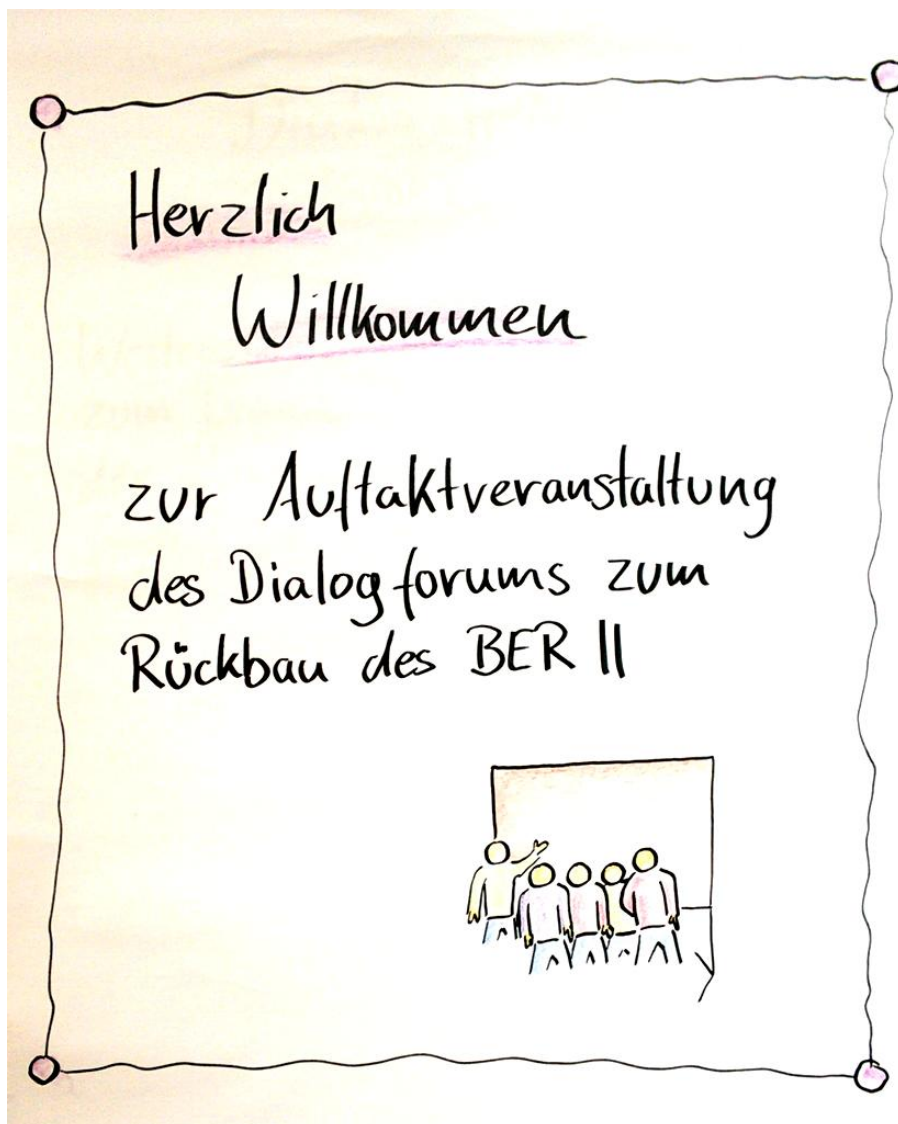 Herzlich
Willkommen
zur Auftaktveranstaltung
des Dialogforums zum
Rückbau des BER II